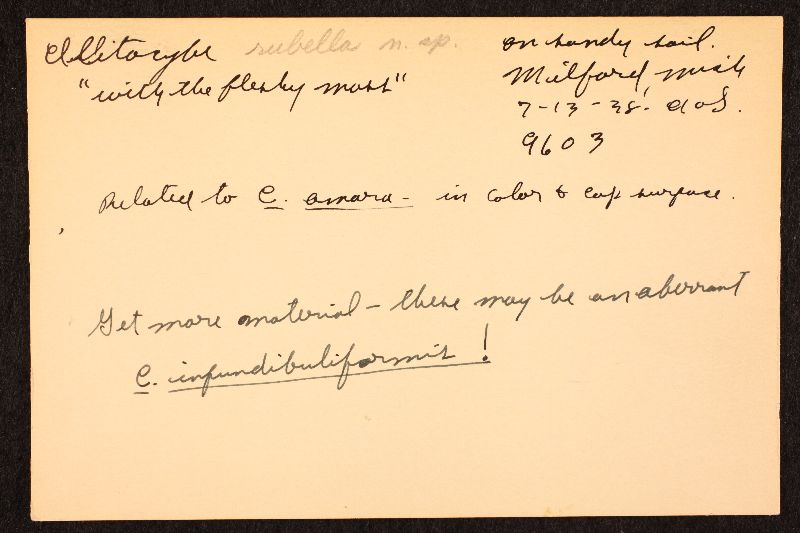 Clitocybe rubella n. sp.
"with the fleshy mass"
on sandy soil.
Milford, Mich
7-13-38,
9603
Related to C. amara - in color & cap surface.
Get more material - these may be an aberrant
C. infundibuliformis!